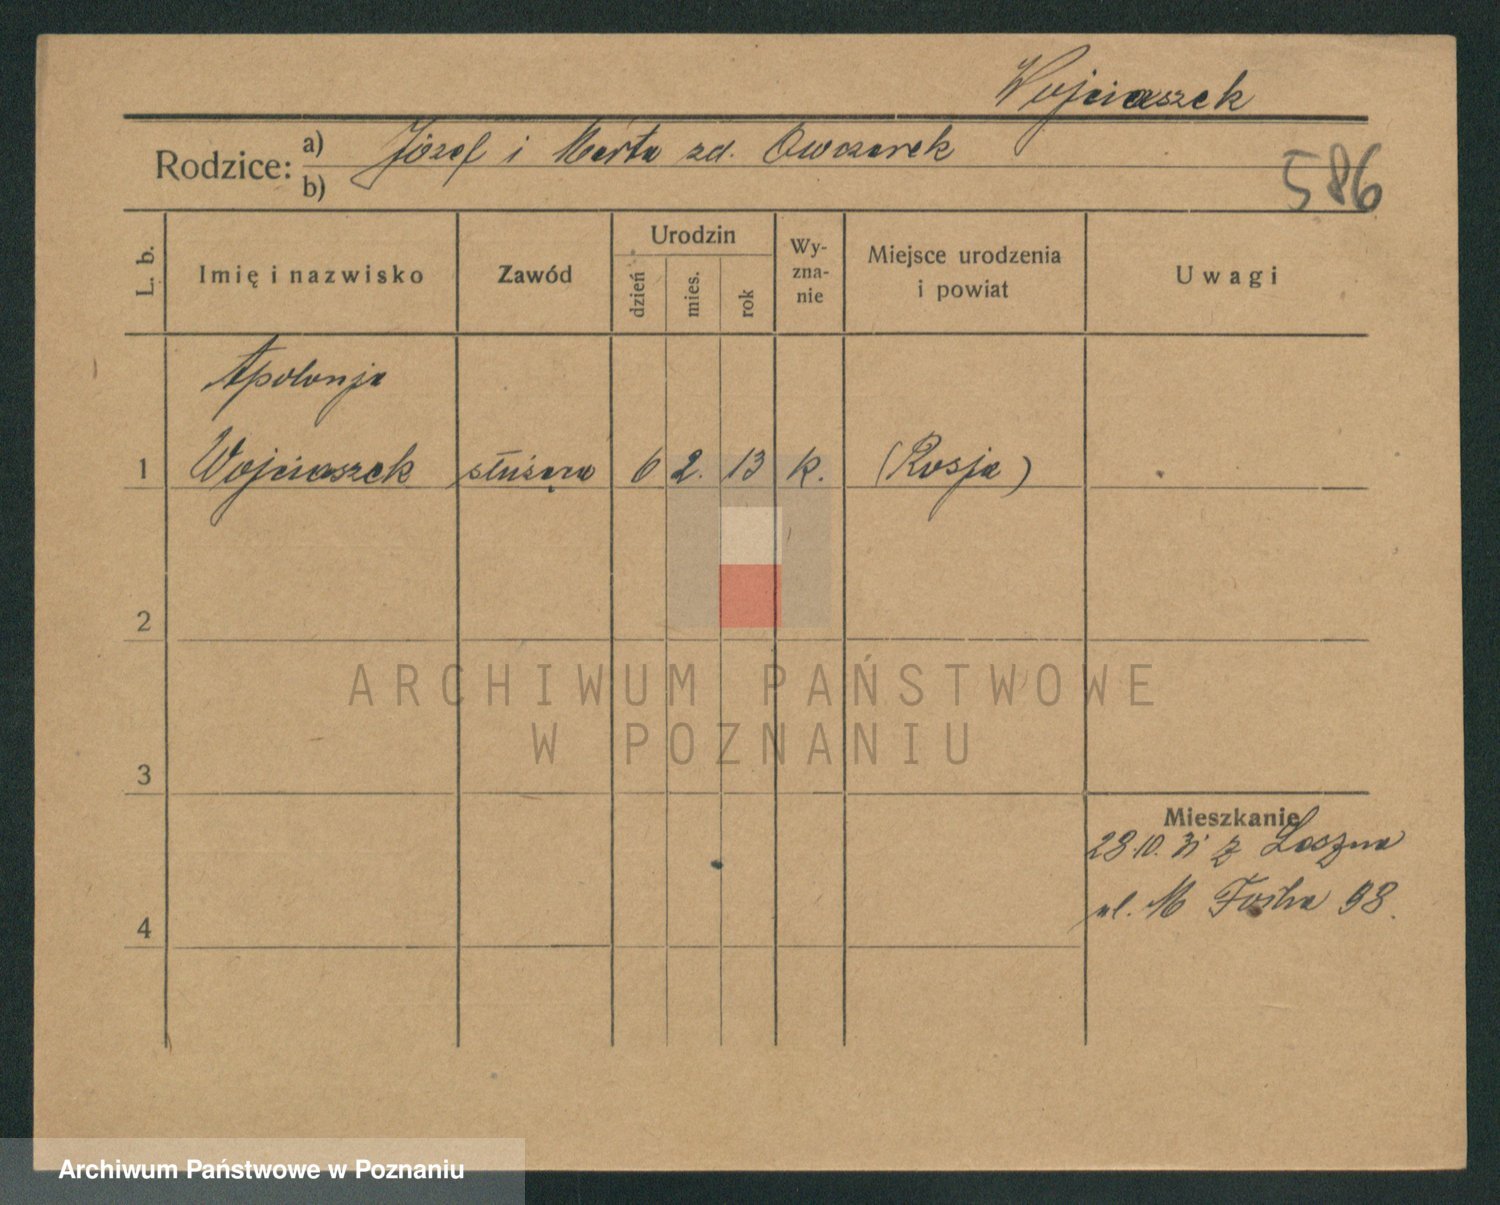 Wojciaszek
Rodzice: a) Józef i Marta zd. Owczarek
b)
586
L. b.
Imię i nazwisko
Zawód
Urodzin
dzień
mies.
rok
Wy-
zna-
nie
Miejsce urodzenia
i powiat
Uwagi
Apolonja
1 Wojciaszek służąca 6 2. 13 k. (Rosja)
2
3
4
Mieszkanie
28.10.31 z Leszna
ul. M Focha 98.
ARCHIWUM PAŃSTWOWE
W POZNANIU
Archiwum Państwowe w Poznaniu